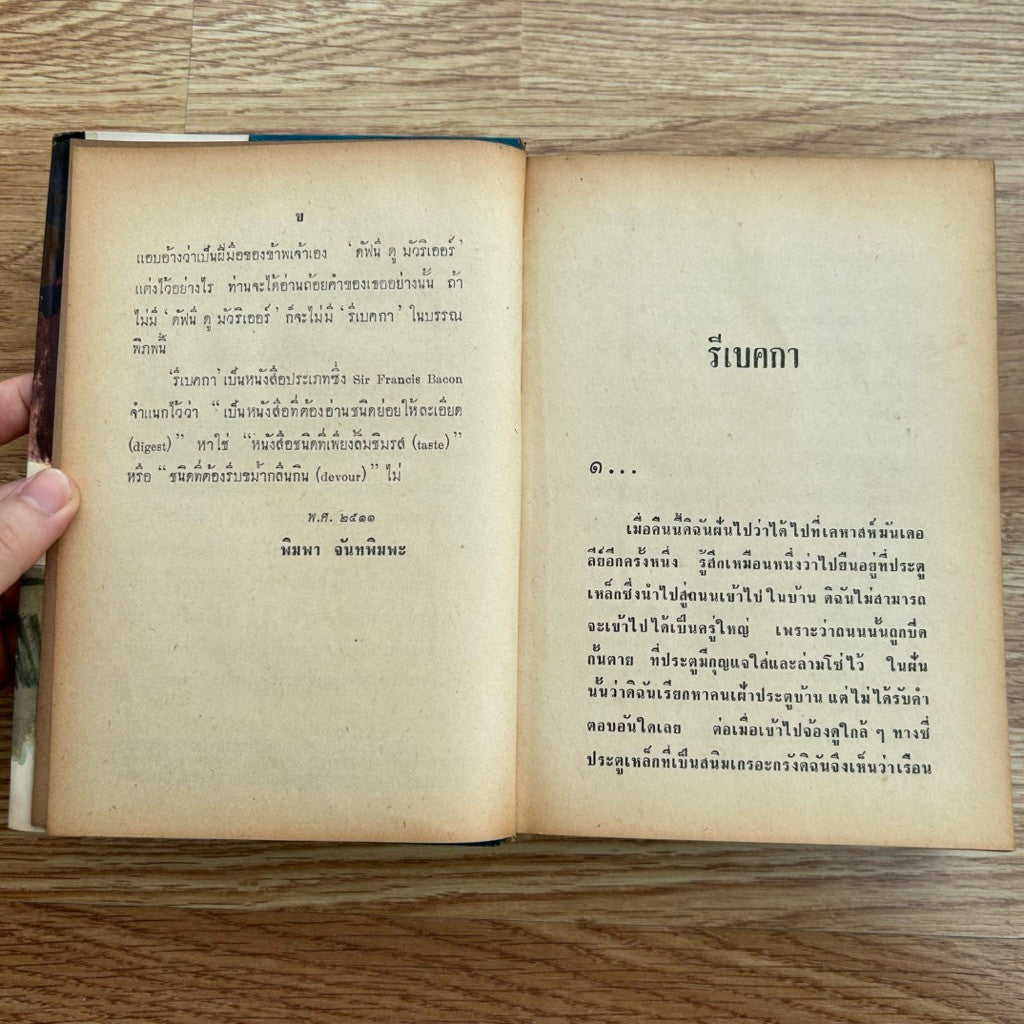 ข
แอบอ้างว่าเป็นฝีมือของข้าพเจ้าเอง ‘ดัฟนี ดู มัวริเออร์’
แต่งไว้อย่างไร ท่านจะได้อ่านถ้อยคำของเธออย่างนั้น ถ้า
ไม่มี ‘ดัฟนี ดู มัวริเออร์’ ก็จะไม่มี ‘รีเบคกา’ ในบรรณ
พิภพนี้
‘รีเบคกา’ เป็นหนังสือประเภทซึ่ง Sir Francis Bacon
จำแนกไว้ว่า “เป็นหนังสือที่ต้องอ่านชนิดย่อยให้ละเอียด
(digest)” หาใช่ “หนังสือชนิดที่เพียงลิ้มชิมรส (taste)”
หรือ “ชนิดที่ต้องรีบขม้ำกลืนกิน (devour)” ไม่
พ.ศ. ๒๕๑๑
พิมพา จันทพิมพะ
รีเบคกา
๑...
เมื่อคืนนี้ดิฉันฝันไปว่าได้ไปที่เคหาสห์มันเดอ
ลีย์อีกครั้งหนึ่ง รู้สึกเหมือนหนึ่งว่าไปยืนอยู่ที่ประตู
เหล็กซึ่งนำไปสู่ถนนเข้าไปในบ้าน ดิฉันไม่สามารถ
จะเข้าไปได้เป็นครู่ใหญ่ เพราะว่าถนนนั้นถูกปิด
กั้นตาย ที่ประตูมีกุญแจใส่และล่ามโซ่ไว้ ในฝัน
นั้นว่าดิฉันเรียกหาคนเฝ้าประตูบ้าน แต่ไม่ได้รับคำ
ตอบอันใดเลย ต่อเมื่อเข้าไปจ้องดูใกล้ ๆ ทางซี่
ประตูเหล็กที่เป็นสนิมเกรอะกรังดิฉันจึงเห็นว่าเรือน